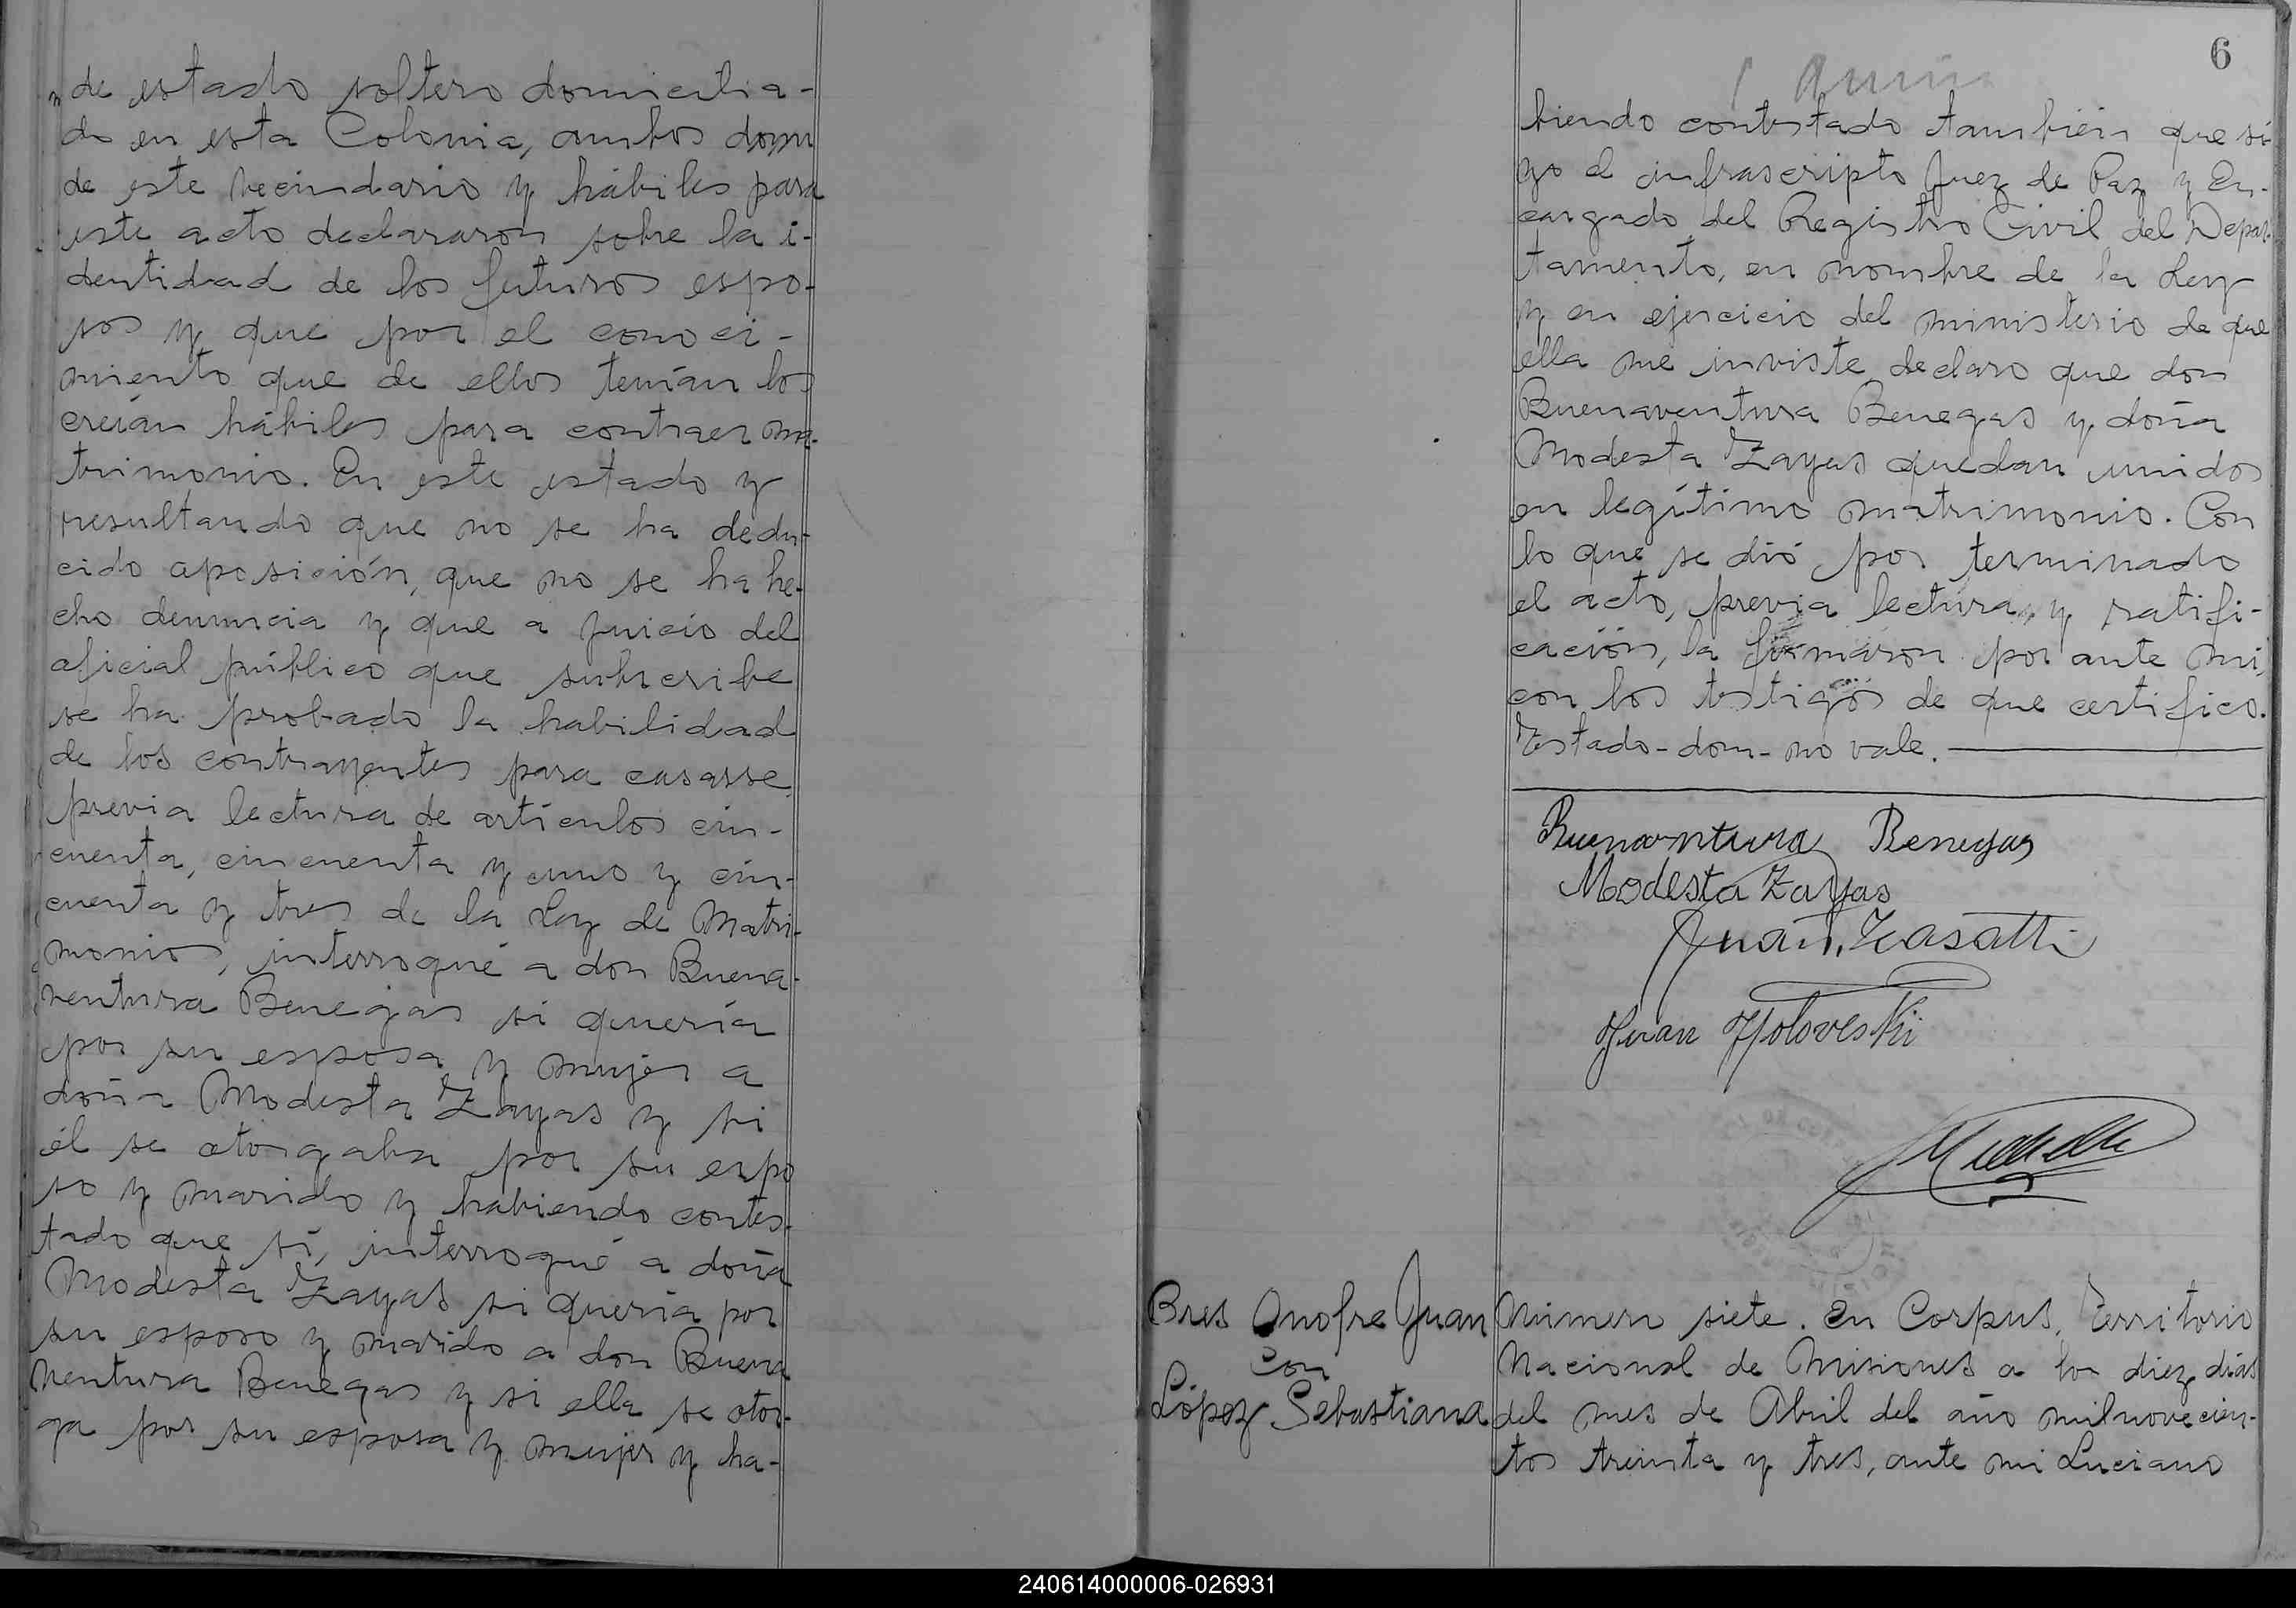 de estado soltero domicilia-
do en esta Colonia, ambos dom
de este vecindario y hábiles para
este acto declararon sobre la i-
dentidad de los futuros espo-
sos y que por el conoci-
miento que de ellos tenían los
creían hábiles para contraer ma-
trimonio. En este estado y
resultando que no se ha dedu-
cido aposición, que no se ha he-
cho denuncia y que a juicio del
oficial público que subscribe
se ha probado la habilidad
de los contrayentes para casarse
previa lectura de artículos cin-
cuenta, cincuenta y uno y cin-
cuenta y tres de la Ley de Matri-
monio, interrogué a don Buena-
ventura Benegas si quería
por su esposa y mujer a
doña Modesta Zayas y si
él se otorgaba por su espo
so y marido y habiendo contes-
tado que sí, interrogué a doña
Modesta Zayas si quería por
su esposo y marido a don Buena
ventura Benegas y si ella se otor-
ga por su esposa y mujer y ha-
6
biendo contestado también que sí
yo el infrascripto Juez de Paz y En-
cargado del Registro Civil del Depar-
tamento, en nombre de la Ley
y en ejercicio del ministerio de que
ella me inviste declaro que don
Buenaventura Benegas y doña
Modesta Zayas quedan unidos
en legítimo matrimonio. Con
lo que se dió por terminado
el acto, previa lectura y ratifi-
cación, la firmaron por ante mi,
con los testigos de que certifico.
Testado-dom-no vale.
Buenaventura Benegas
Modesta Zayas
Juan Casatti
Juan Holoveski
Bres Onofre Juan
con
López Sebastiana
Número siete. En Corpus, Territorio
Nacional de Misiones a los diez días
del mes de Abril del año mil novecien-
tos treinta y tres, ante mi Luciano
240614000006-026931